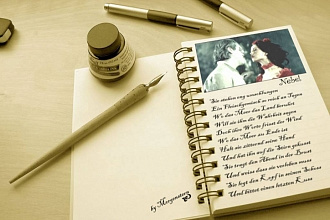 Nebel
Sie stehen eng umschlungen
Ein Fleischgemisch so reich an Tagen
Wo das Meer das Land berührt
Will sie ihm die Wahrheit sagen
Doch ihre Worte frisst der Wind
Wo das Meer zu Ende ist
Hält sie zitternd seine Hand
Und hat ihn auf die Stirn geküsst
Sie trägt den Abend in der Brust
Und weiss dass sie verleben muss
Sie legt den Kopf in seinen Schoss
Und bittet einen letzten Kuss
by Morgenstern